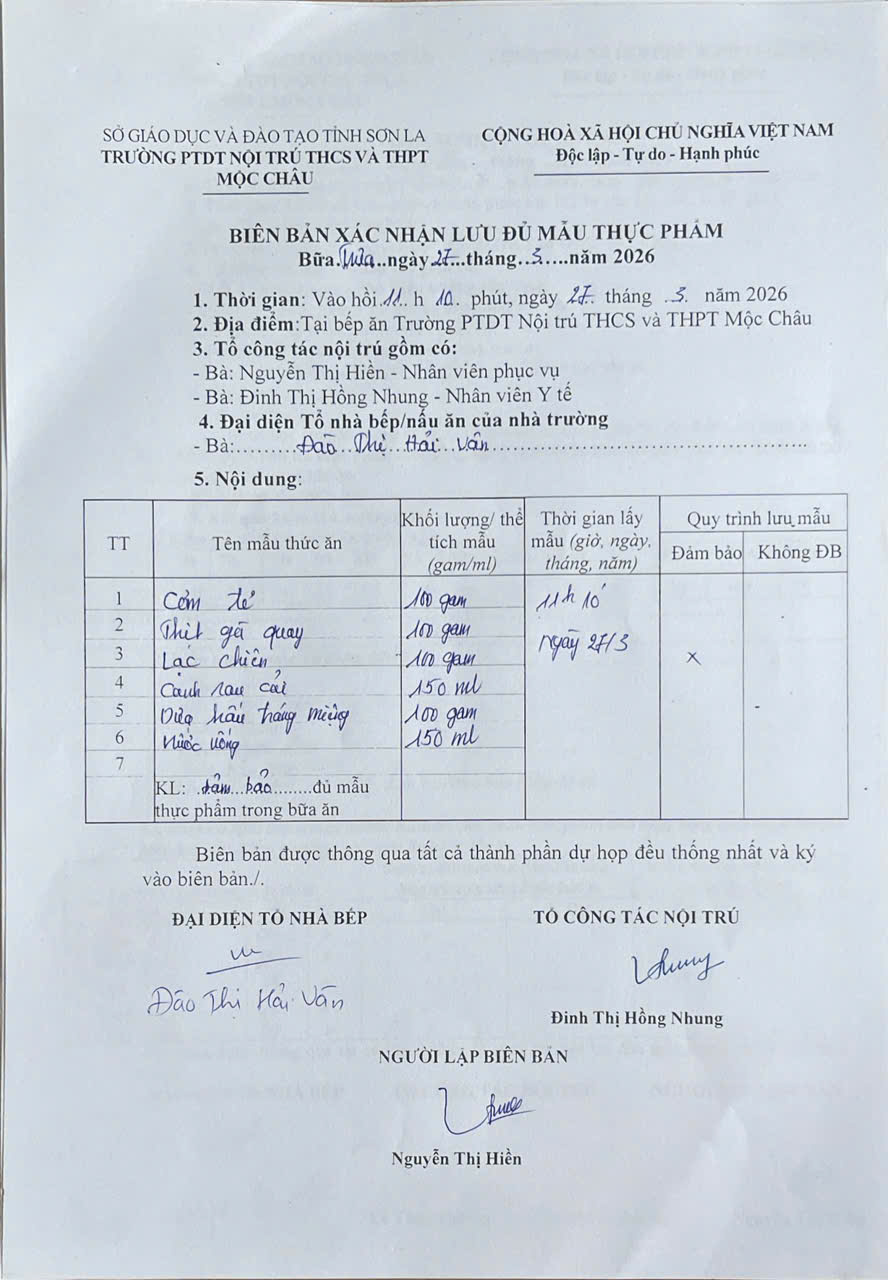 SỞ GIÁO DỤC VÀ ĐÀO TẠO TỈNH SƠN LA
TRƯỜNG PTDT NỘI TRÚ THCS VÀ THPT
MỘC CHÂU
CỘNG HOÀ XÃ HỘI CHỦ NGHĨA VIỆT NAM
Độc lập - Tự do - Hạnh phúc
BIÊN BẢN XÁC NHẬN LƯU ĐỦ MẪU THỰC PHẨM
Bữa.Trưa..ngày27...tháng..3.....năm 2026
1. Thời gian: Vào hồi.11.. h 10. phút, ngày 27. tháng .3. năm 2026
2. Địa điểm:Tại bếp ăn Trường PTDT Nội trú THCS và THPT Mộc Châu
3. Tổ công tác nội trú gồm có:
- Bà: Nguyễn Thị Hiền - Nhân viên phục vụ
- Bà: Đinh Thị Hồng Nhung - Nhân viên Y tế
4. Đại diện Tổ nhà bếp/nấu ăn của nhà trường
- Bà:.........Đào Thị Hải Vân.........
5. Nội dung:
TT
Tên mẫu thức ăn
Khối lượng/ thể tích mẫu (gam/ml)
Thời gian lấy mẫu (giờ, ngày, tháng, năm)
Quy trình lưu mẫu
Đảm bảo
Không ĐB
1 Cơm tẻ 100 gam 11h 10'
2 Thịt gà quay 100 gam
3 Lạc chiên 100 gam ngày 27/3 x
4 Canh rau cải 150 ml
5 Dưa hấu tráng miệng 100 gam -
6 Nước uống 150 ml
7
KL: .đảm bảo.........đủ mẫu
thực phẩm trong bữa ăn
Biên bản được thông qua tất cả thành phần dự họp đều thống nhất và ký
vào biên bản./.
ĐẠI DIỆN TỔ NHÀ BẾP
TỔ CÔNG TÁC NỘI TRÚ
Đào Thị Hải Vân
Nhung
Đinh Thị Hồng Nhung
NGƯỜI LẬP BIÊN BẢN
Nguyễn Thị Hiền